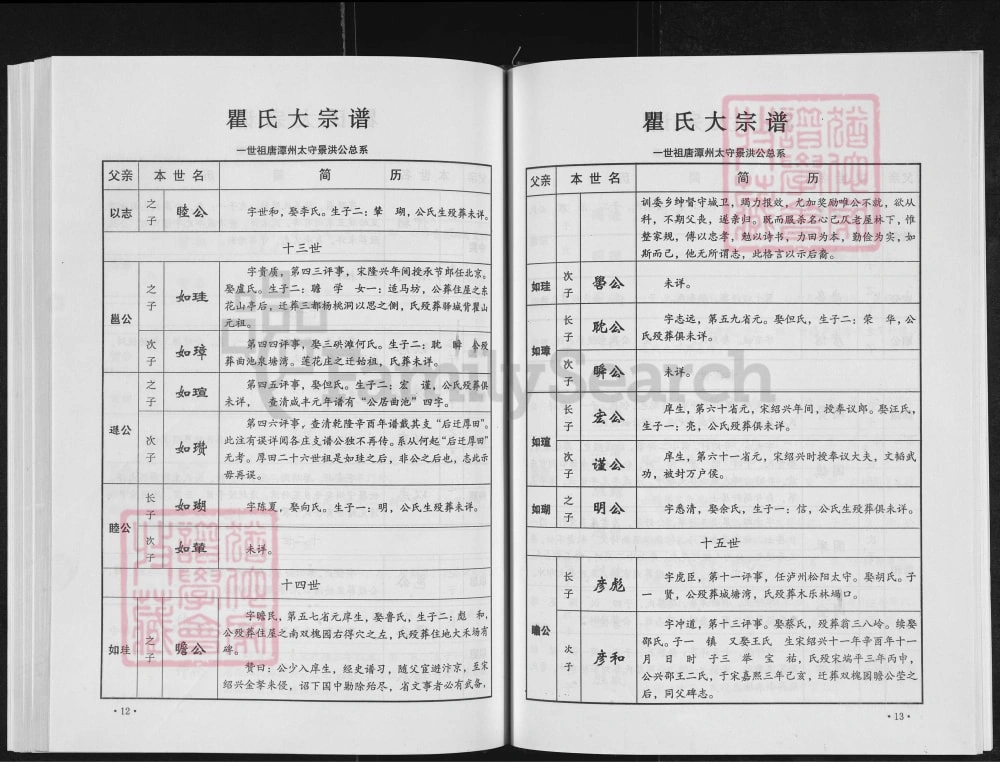 瞿氏大宗谱
一世祖唐潭州太守景洪公总系
父亲 本世名 简历
以志 之子 睦公 字世和，娶李氏。生子二：辇 瑚，公氏生殁葬未详。
十三世
邕公 之子 如珪 字贵质，第四三评事，宋隆兴年间授承节郎任北京。
娶卢氏。生子二：瞻 学 女一：适马坊，公葬住屋之东
花山亭后，迁葬三都杨桃洞以思之侧，氏殁葬驿城背瞿山
元祖。
次子 如璋 第四四评事，娶三硔滩何氏。生子二：耽 瞬 合殁
葬曲池泉塘湾。莲花庄之迁始祖，氏葬未详。
逊公 之子 如瑄 第四五评事，娶但氏。生子二：宏 谨，公氏殁葬俱
未详， 查清咸丰元年谱有“公居曲池”四字。
次子 如瓒 第四六评事，查清乾隆辛酉年谱载其支“后迁厚田”。
此注有误详阅各庄支谱公独不再传。系从何起“后迁厚田”
无考。厚田二十六世祖是如珪之后，非公之后也，志此示
毋再误。
睦公 长子 如瑚 字陈夏，娶向氏。生子一：明，公氏生殁葬未详。
次子 如辇 未详。
十四世
如珪 之子 瞻公 字瞻民，第五七省元庠生，娶鲁氏，生子二：彪 和，
公殁葬住屋之南双槐园右得穴之左，氏殁葬住地大禾场有
碑。
赞曰：公少入庠生，经史谱习，随父宦游汴京，至宋
绍兴金孽来侵，诏下国中勤除殆尽，省文事者必有武备，
·12·
瞿氏大宗谱
一世祖唐潭州太守景洪公总系
父亲 本世名 简历
训委乡绅督守城卫，竭力报效，尤加奖励唯公不就，欲从
科，不期父丧，遂亲供。既而服杀名心已仄老屋林下，惟
整家规，傅以忠孝，勉以诗书，力田为本，勤俭为实，如
斯而已，他无所谓志，此格言以示后裔。
如珪 次子 学公 未详。
如璋 长子 耽公 字志远，第五九省元。娶但氏，生子二：荣 华，公
氏殁葬俱未详。
次子 瞬公 未详。
如瑄 长子 宏公 庠生，第六十省元，宋绍兴年间，授奉议郎。娶汪氏，
生子一：亮，公氏殁葬俱未详。
次子 谨公 庠生，第六十一省元，宋绍兴时授奉议大夫，文韬武
功，被封万户侯。
如瑚 之子 明公 字悉清，娶余氏，生子一：信，公氏生殁葬俱未详。
十五世
瞻公 长子 彦彪 字虎臣，第十一评事，任泸州松阳太守。娶胡氏。子
一 贤，公殁葬城塘湾，氏殁葬木乐林塅口。
次子 彦和 字冲道，第十三评事。娶蔡氏，殁葬翁三八岭。续娶
邵氏。子一 镇 又娶王氏 生宋绍兴十一年辛酉年十一
月 日 时 子三 举 宝 祐，氏殁宋端平三年丙申，
公兴邵王二氏，于宋嘉熙三年己亥，迁葬双槐园瞻公茔之
后，同父碑志。
·13·
FamilySearch